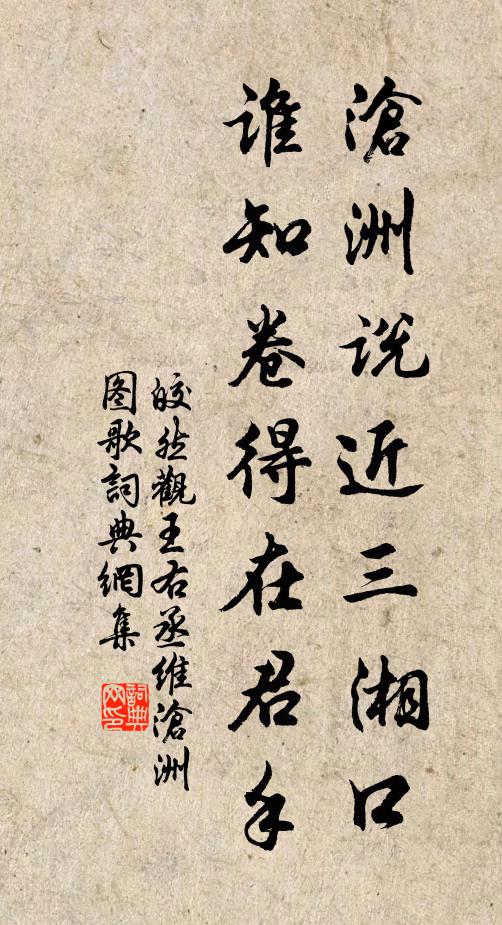 滄洲說近三湘口
誰知卷得在君手
皎然觀王右丞維滄洲
圖歌詞典網集
詞典
网印